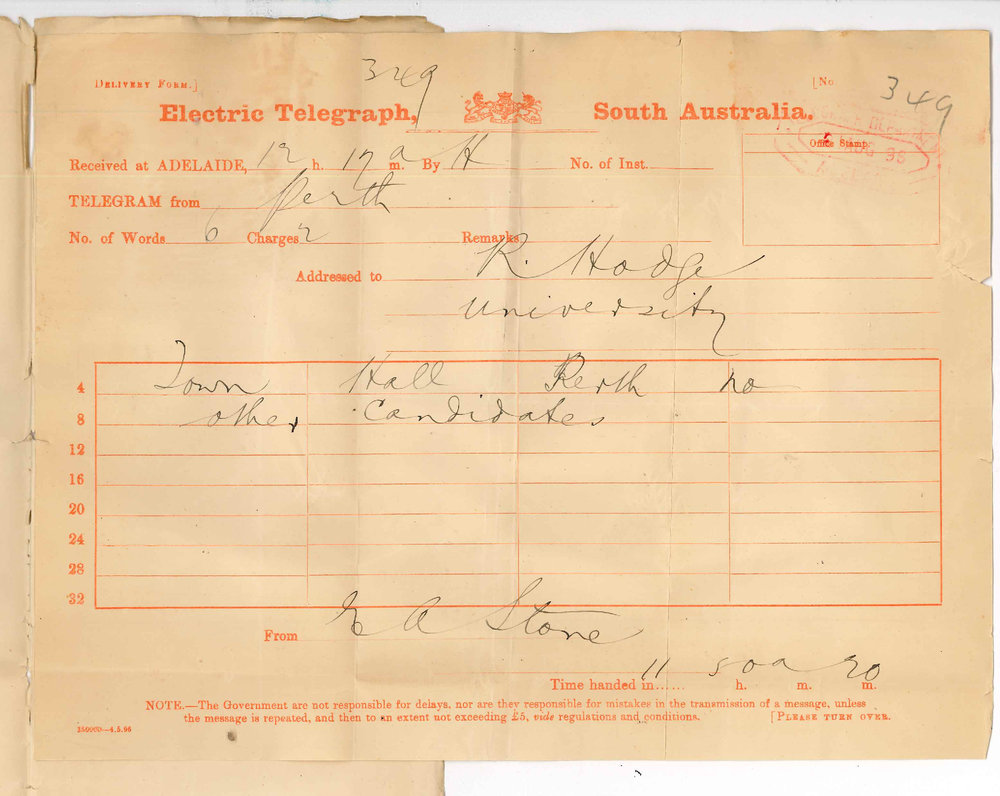 DELIVERY FORM.] 349 [No 349
Electric Telegraph, South Australia.
Office Stamp.
Received at ADELAIDE, 12 h. 17 a m. By H No. of Inst.
TELEGRAM from Perth
No. of Words 6 Charges 2 Remarks
Addressed to R. Hodge
University
4 Town Hall Perth no
8 other candidates
12
16
20
24
28
32
From E A Stone
11 50a 20
Time handed in...... h. m. m.
NOTE.—The Government are not responsible for delays, nor are they responsible for mistakes in the transmission of a message, unless
the message is repeated, and then to an extent not exceeding £5, vide regulations and conditions. [PLEASE TURN OVER.